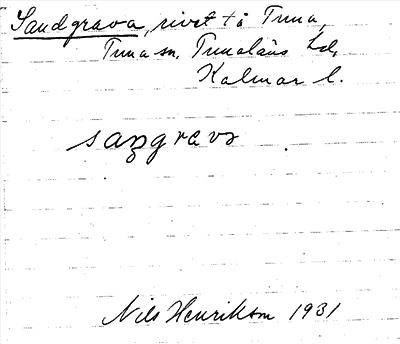 Sandgrava, rivet tå Tuna,
Tuna sn, Tunaläns hd,
Kalmar l.
sangrava
Nils Henrikson 1931